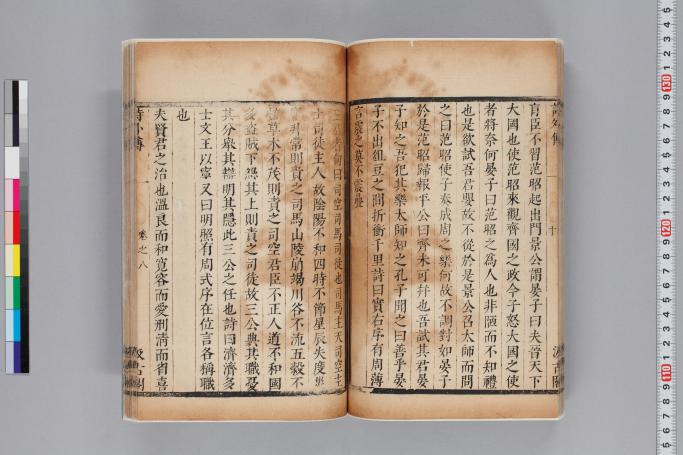 詩外傳 十 汲古閣
盲臣不習范昭起出門景公謂晏子曰夫晉天下
大國也使范昭來觀齊國之政今子怒大國之使
者將奈何晏子曰范昭之爲人也非陋而不知禮
也是欲試吾君嬰故不從於是景公召太師而問
之曰范昭使子奏成周之樂何故不調對如晏子
於是范昭歸報平公曰齊未可幷也吾試其君晏
子知之吾犯其樂太師知之孔子聞之曰善乎晏
子不出俎豆之間折衝千里詩曰實右序有周薄
言震之莫不震疊
三公者何曰司空司馬司徒也司馬主天司空主
土司徒主人故陰陽不和四時不節星辰失度災
非常則責之司馬山陵崩竭川谷不流五穀不
植草木不茂則責之司空君臣不正人道不和國
多盜賊下怨其上則責之司徒故三公典其職憂
其分舉其辯明其隱此三公之任也詩曰濟濟多
士文王以寧又曰明照有周式序在位言各稱職
也
夫賢君之治也溫良而和寬容而愛刑清而省喜
詩外傳 卷之八 汲古閣